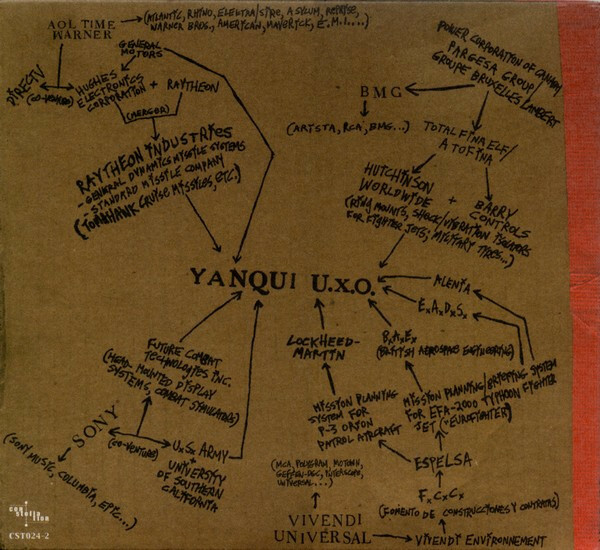 AOL TIME
WARNER
(ATLANTIC, RHINO, ELEKTRA/SIRE, ASYLUM, REPRISE,
WARNER BROS., AMERICAN, MAVERICK, E.M.I....)
GENERAL
MOTORS
DIRECTV
(CO-VENTURE)
HUGHES
ELECTRONICS
CORPORATION
+
RAYTHEON
(MERGER)
RAYTHEON INDUSTRIES
- GENERAL DYNAMICS MISSILE SYSTEMS
- STANDARD MISSILE COMPANY
(TOMAHAWK CRUISE MISSILES, ETC.)
POWER CORPORATION OF CANADA/
PARGESA GROUP/
GROUPE BRUXELLES LAMBERT
BMG
(ARISTA, RCA, BMG...)
TOTALFINAELF/
ATOFINA
HUTCHINSON
WORLDWIDE
+
BARRY
CONTROLS
(RING MOUNTS, SHOCK/VIBRATION ISOLATORS
FOR FIGHTER JETS; MILITARY TIRES...)
YANQUI U.X.O.
ALENIA
E.A.D.S.
LOCKHEED-
MARTIN
B.A.E.
(BRITISH AEROSPACE ENGINEERING)
FUTURE COMBAT
TECHNOLOGIES INC.
(HEAD MOUNTED DISPLAY
SYSTEMS, COMBAT SIMULATORS)
SONY
(CO-VENTURE)
U.S. ARMY
+
UNIVERSITY
OF SOUTHERN
CALIFORNIA
(SONY MUSIC, COLUMBIA, EPIC...)
MISSION PLANNING
SYSTEM FOR
P-3 ORION
PATROL AIRCRAFT
MISSION PLANNING/BRIEFING SYSTEM
FOR EFA-2000 TYPHOON FIGHTER
JET ("EUROFIGHTER")
ESPELSA
F.C.C.
(FOMENTO DE CONSTRUCCIONES Y CONTRATAS)
(MCA, POLYGRAM, MOTOWN,
GEFFEN-DGC, INTERSCOPE,
UNIVERSAL...)
VIVENDI
UNIVERSAL
VIVENDI ENVIRONNEMENT
con
stella
tion
CST024-2